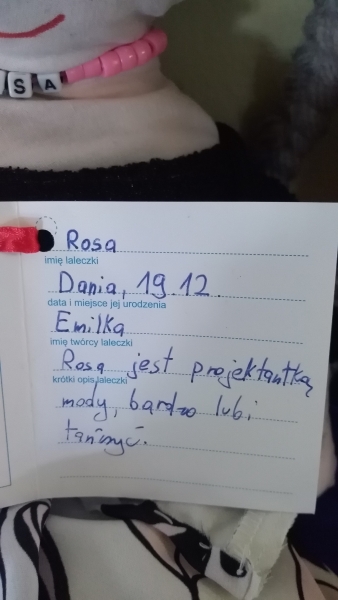 SA
Rosa
imię laleczki
Dania, 19.12.
data i miejsce jej urodzenia
Emilka
imię twórcy laleczki
Rosa jest projektantką
krótki opis laleczki
mody, bardzo lubi
tańczyć.